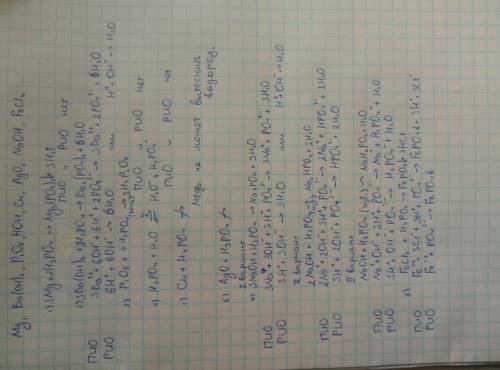 Mg, Ba(OH)₂, P₂O₅, HOH, Cu, AgO, NaOH, FeCl₃
1) 3Mg+2H₃PO₄→Mg₃(PO₄)₂↓+3H₂↑
ПИО и РИО нет
2) 3Ba(OH)₂+2H₃PO₄→Ba₃(PO₄)₂+6H₂O
ПИО 3Ba²⁺+6OH⁻+6H⁺+2PO₄³⁻→3Ba²⁺+2PO₄³⁻+6H₂O
РИО 6H⁺+6OH⁻→6H₂O или H⁺+OH⁻→H₂O
3) P₂O₅+H₃PO₄
ПИО и РИО нет
4) H₃PO₄+H₂O ⇄ H₃O⁺+H₂PO₄⁻
ПИО и РИО нет
5) Cu+H₃PO₄ ↛
медь не может вытеснить водород.
6) AgO+H₃PO₄ ↛
I вариант
7) 3NaOH+H₃PO₄→Na₃PO₄+3H₂O
ПИО 3Na⁺+3OH⁻+3H⁺+PO₄³⁻→3Na⁺+PO₄³⁻+3H₂O
РИО 3H⁺+3OH⁻→3H₂O или H⁺+OH⁻→H₂O
II вариант
2NaOH+H₃PO₄→Na₂HPO₄+2H₂O
ПИО 2Na⁺+2OH⁻+3H⁺+PO₄³⁻→2Na⁺+HPO₄²⁻+2H₂O
РИО 3H⁺+2OH⁻+PO₄³⁻→HPO₄²⁻+2H₂O
III вариант
NaOH+H₃PO₄→NaH₂PO₄+H₂O
ПИО Na⁺+OH⁻+3H⁺+PO₄³⁻→Na⁺+H₂PO₄⁻+H₂O
РИО 3H⁺+OH⁻+PO₄³⁻→H₂PO₄⁻+H₂O
8) FeCl₃+H₃PO₄→FePO₄↓+3HCl
ПИО Fe³⁺+3Cl⁻+3H⁺+PO₄³⁻→FePO₄↓+3H⁺+3Cl⁻
РИО Fe³⁺+PO₄³⁻→FePO₄↓